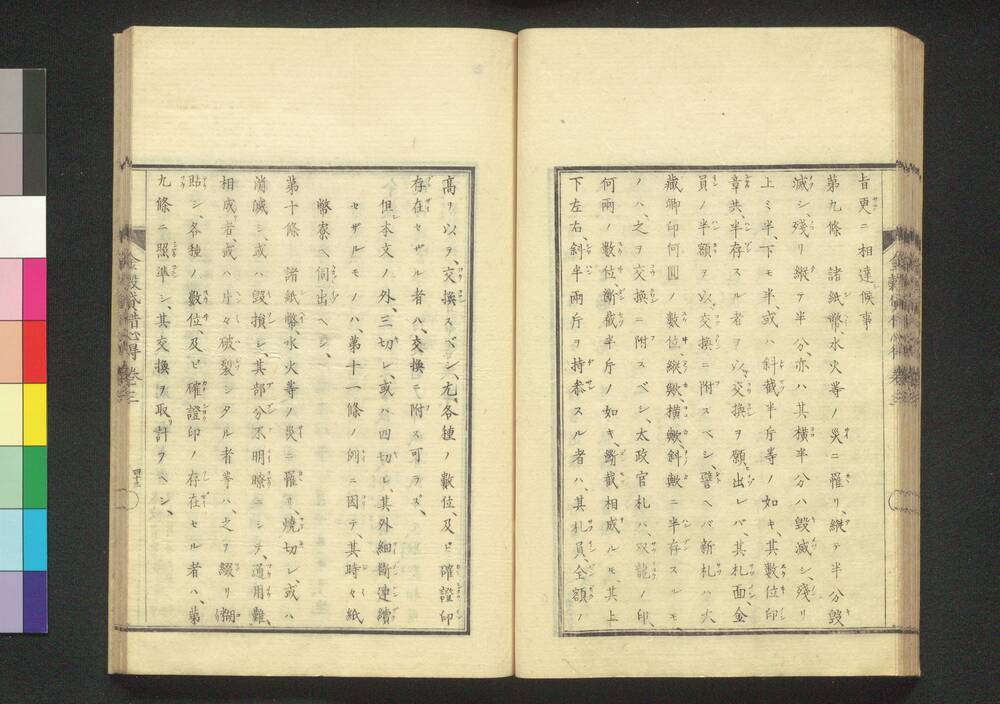 旨更ニ相達候事
第九條 諸紙幣、水火等ノ災ニ罹リ、縱テ半分毀
滅シ、殘リ縱テ半分、亦ハ其横半分ハ毀滅シ、殘リ
上ミ半、下モ半或ハ斜截半斤等ノ如キ、其數位印
章共、半存スル者ヲ以、交換ヲ願出レバ、其札面、金
員ノ半額ヲ以交換ニ附スベシ、譬ヘバ新札ハ大
藏卿印何圓ノ數位、縱歟、横歟、斜歟ニ半存スルモ
ノハ、之ヲ交換ニ附スベシ、太政官札ハ、双龍ノ印、
何兩ノ數位、斷截半斤ノ如キ、斷截相成ルモ、其上
下左右、斜半兩斤ヲ持参スル者ハ、其札員、全額ノ
高ヲ以テ、交換スベシ、尤、各種ノ數位、及ビ確證印
存在セザル者ハ、交換ニ附ス可ラズ、
但本文ノ外、三切レ、或ハ四切レ、其外細斷連續
セザルモノハ、第十一條ノ例ニ因テ、其時々紙
幣寮ヘ伺出ヘシ、
第十條 諸紙幣、水火等ノ災ニ罹リ、燒切レ、或ハ
消滅シ、或ハ毀損シ、其部分不明瞭ニシテ、通用難
相成者、或ハ片々破裂シタル者等ハ、之ヲ綴リ糊
貼シ、各種ノ數位、及ビ確證印ノ存在セル者ハ、第
九條ニ照準シ、其交換ヲ取計フヘシ、
金穀貸借心得 卷三